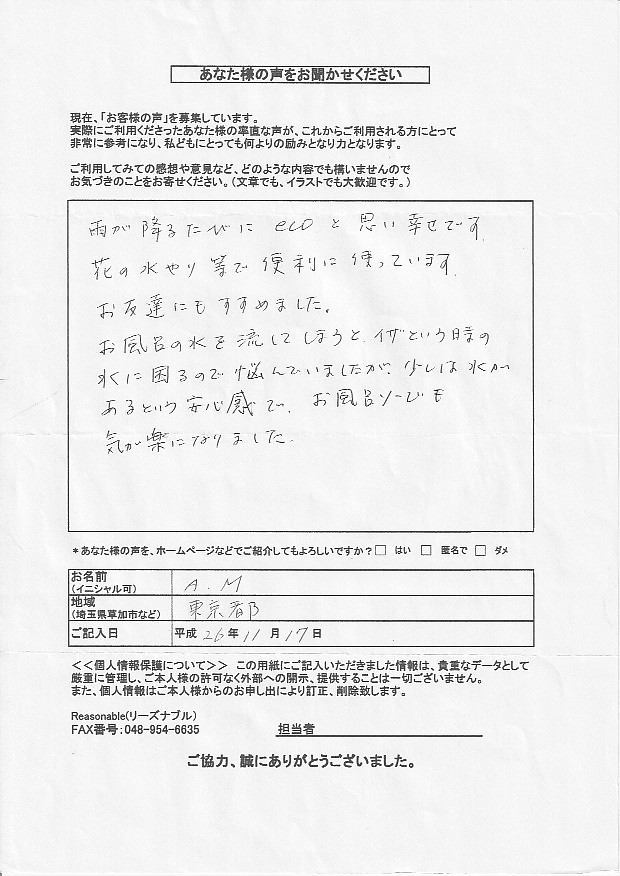 あなた様の声をお聞かせください
現在、「お客様の声」を募集しています。
実際にご利用くださったあなた様の率直な声が、これからご利用される方にとって
非常に参考になり、私どもにとっても何よりの励みとなり力となります。
ご利用してみての感想や意見など、どのような内容でも構いませんので
お気づきのことをお寄せください。（文章でも、イラストでも大歓迎です。）
雨が降るたびに eco と思い幸せです。
花の水やり等で便利に使っています。
お友達にもすすめました。
お風呂の水を流してしまうと、イザという時の
水に困るので悩んでいましたが、少しは水が
あるという安心感で、お風呂ソージも
気が楽になりました。
＊あなた様の声を、ホームページなどでご紹介してもよろしいですか？□ はい □ 匿名で □ ダメ
お名前
（イニシャル可） A.M
地域
（埼玉県草加市など） 東京都
ご記入日 平成 26 年 11 月 17 日
＜＜個人情報保護について＞＞ この用紙にご記入いただきました情報は、貴重なデータとして
厳重に管理し、ご本人様の許可なく外部への開示、提供することは一切ございません。
また、個人情報はご本人様からのお申し出により訂正、削除致します。
Reasonable(リーズナブル)
FAX番号：048-954-6635 担当者
ご協力、誠にありがとうございました。